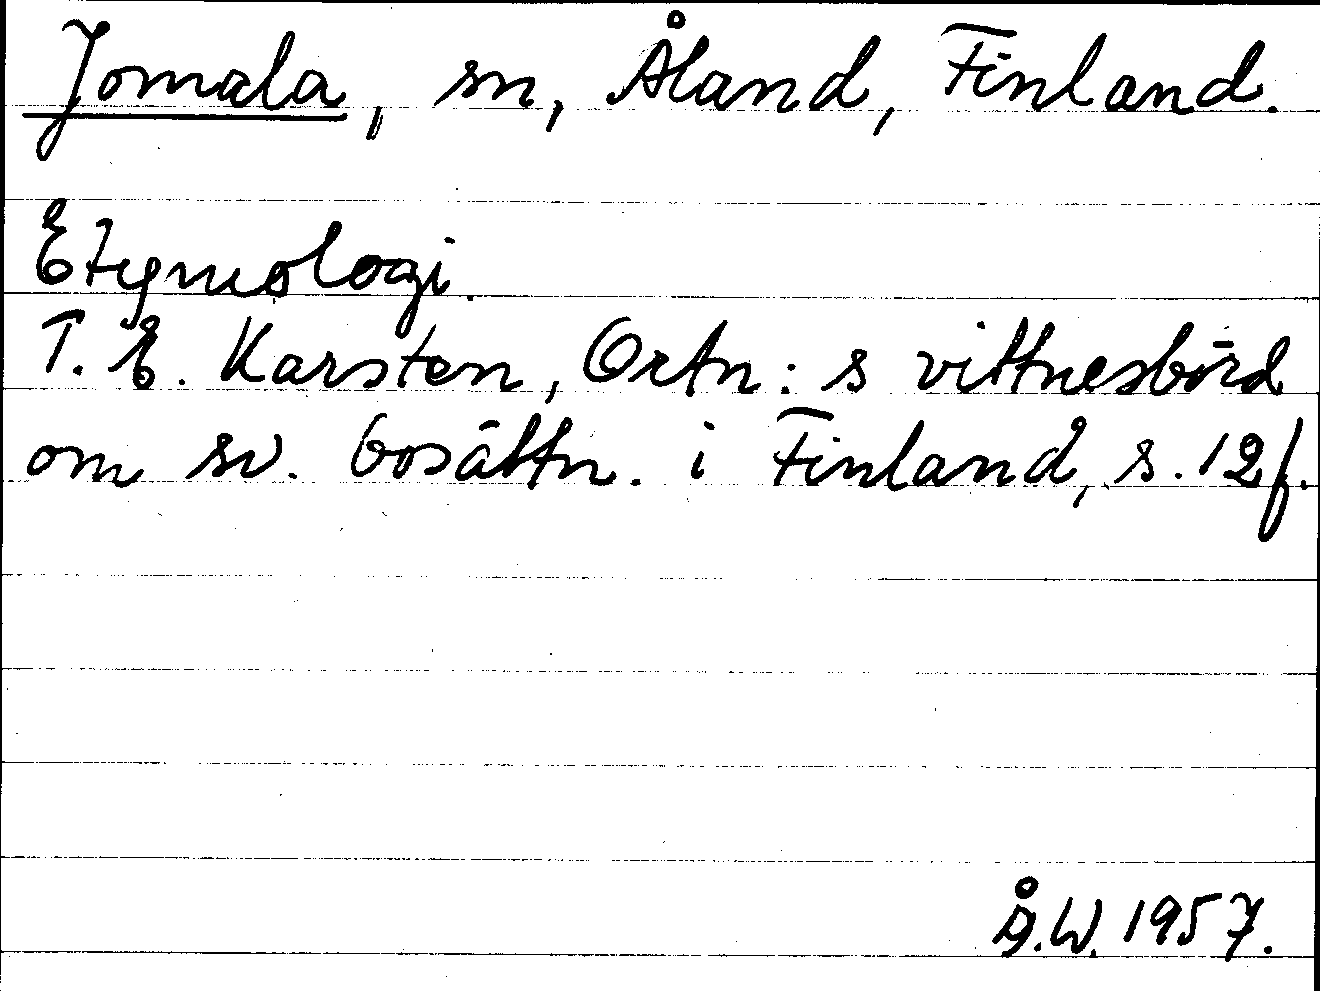 Jomala, sn, Åland, Finland.
Etymologi.
T. E. Karsten, Ortn:s vittnesbörd
om sv. bosättn. i Finland, s. 12f.
Å.W. 1957.